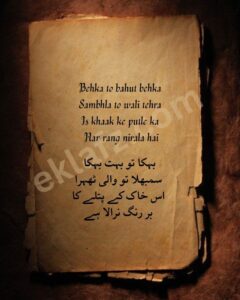 Behka to bahut behka
Sambhla to wali tehra
Is khaak ke putle ka
Har rang nirala hai
بہکا تو بہت بہکا
سمبھلا تو والی ٹھہرا
اس خاک کے پتلے کا
ہر رنگ نرالا ہے